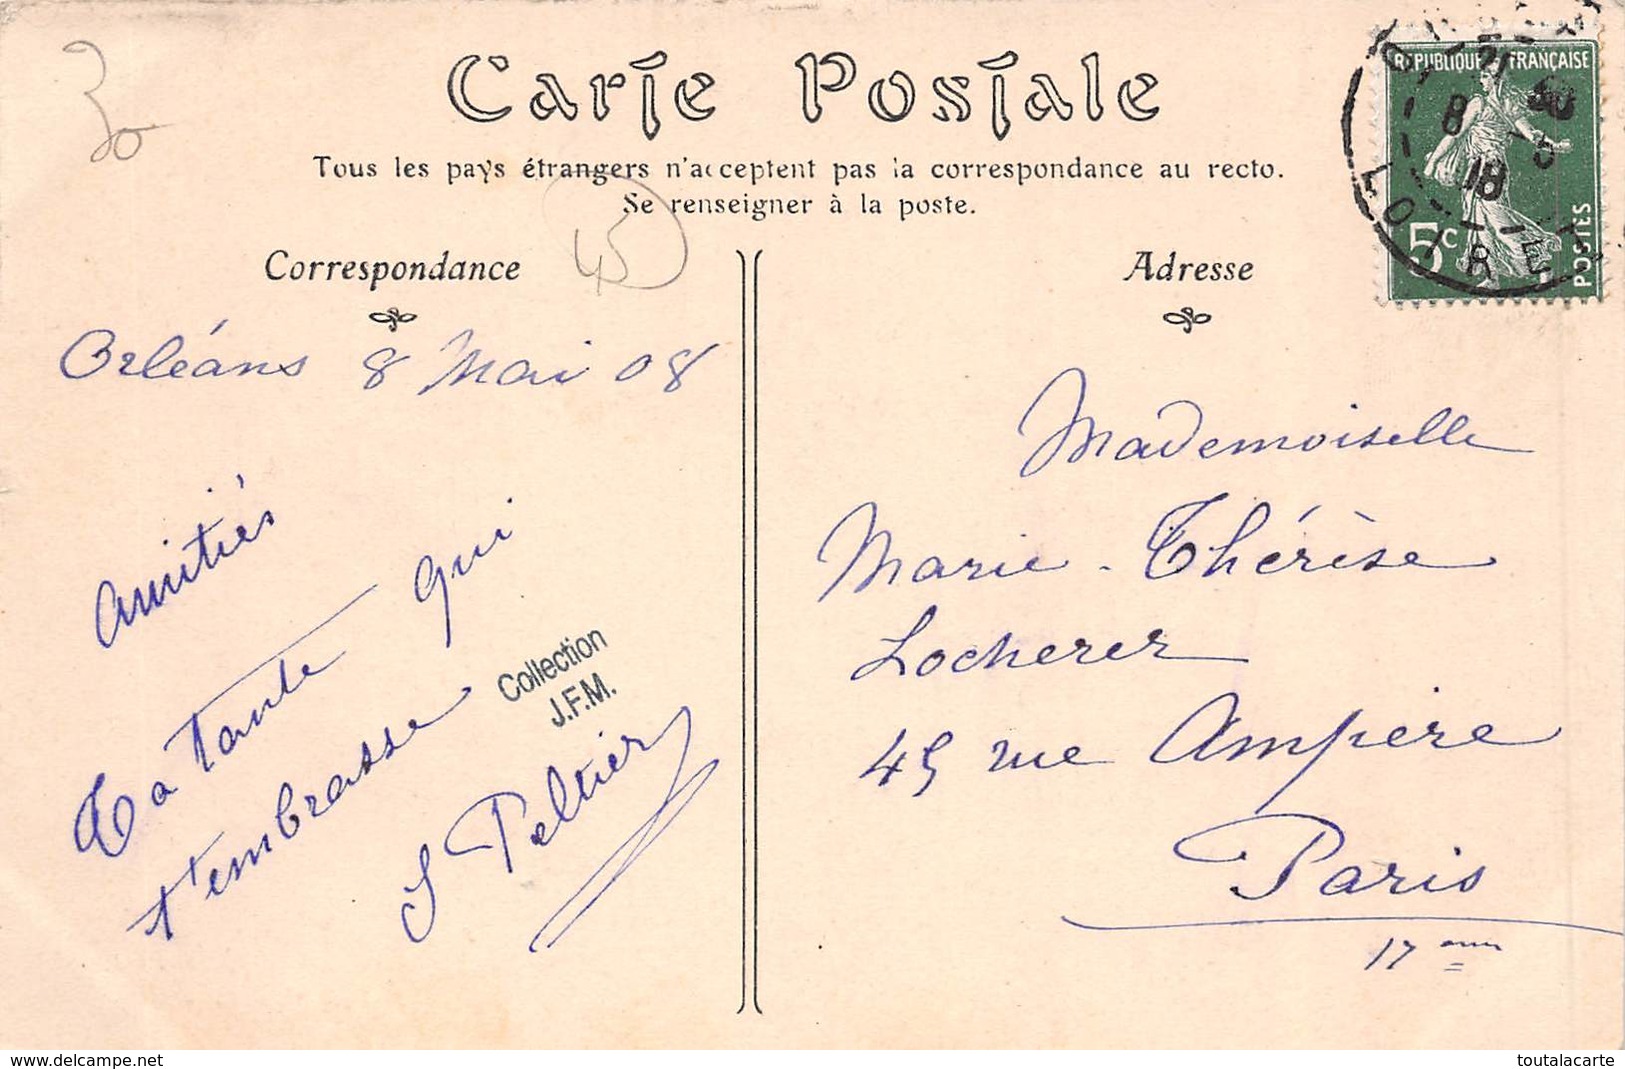 30
Carte Postale
Tous les pays étrangers n'acceptent pas la correspondance au recto.
Se renseigner à la poste.
RÉPUBLIQUE FRANÇAISE
5c
POSTES
8
LOIRET
Correspondance
45
Orléans 8 Mai 08
Amitiés
Ta Tante qui
t'embrasse
J Peltier
Collection
J.F.M.
Adresse
Mademoiselle
Marie-Thérèse
Locherer
45 rue Ampère
Paris
17eme
www.delcampe.net
toutalacarte